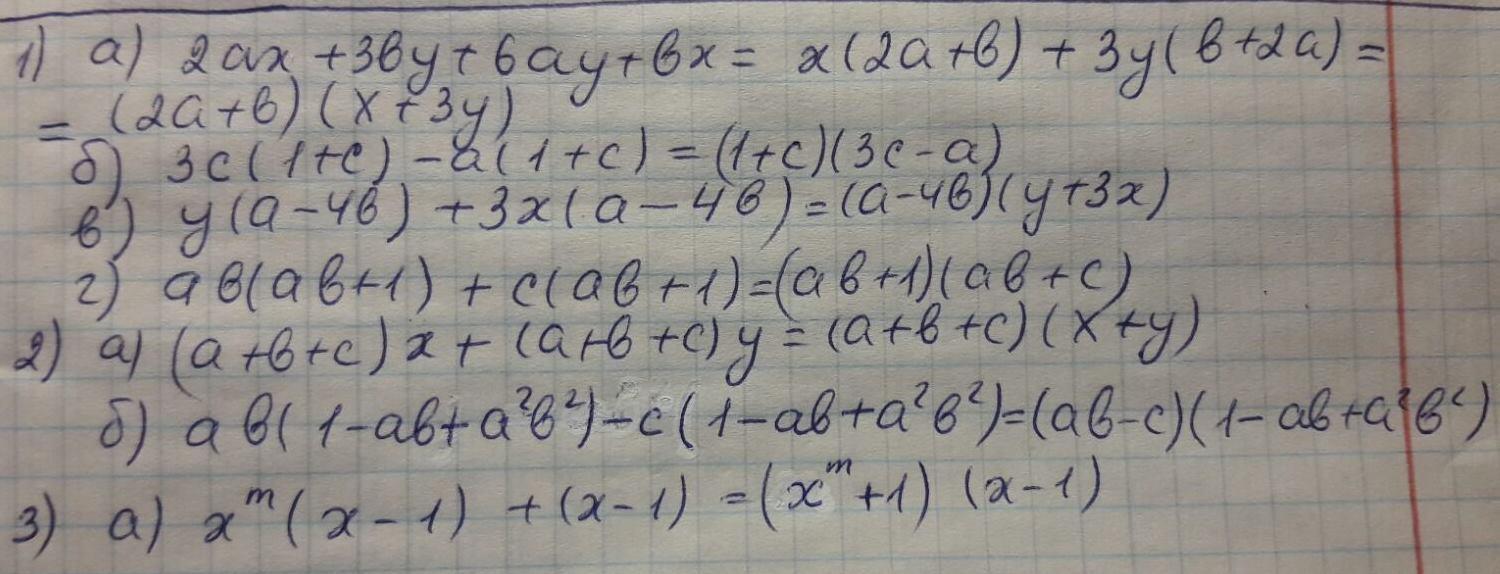 1) а) 2ax + 3вy + 6ay + вx = x(2a+в) + 3y(в+2a) =
= (2a+в)(x+3y)
б) 3c(1+c) - a(1+c) = (1+c)(3c-a)
в) y(a-4в) + 3x(a-4в) = (a-4в)(y+3x)
г) aв(aв+1) + c(aв+1) = (aв+1)(aв+c)
2) а) (a+в+c)x + (a+в+c)y = (a+в+c)(x+y)
б) aв(1-aв+a²в²) - c(1-aв+a²в²) = (aв-c)(1-aв+a²в²)
3) а) xᵐ(x-1) + (x-1) = (xᵐ+1)(x-1)